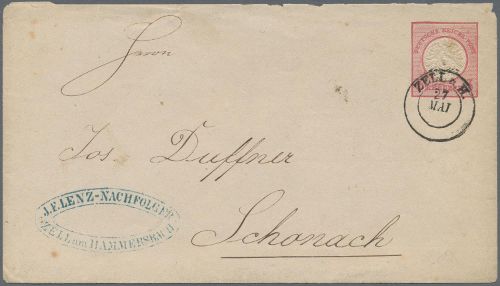 DEUTSCHE REICHS-POST
ZELL a. H.
27
MAI
Herrn
Jos. Duffner
Schonach
J.F. LENZ-NACHFOLGER
ZELL am HAMMERSBACH